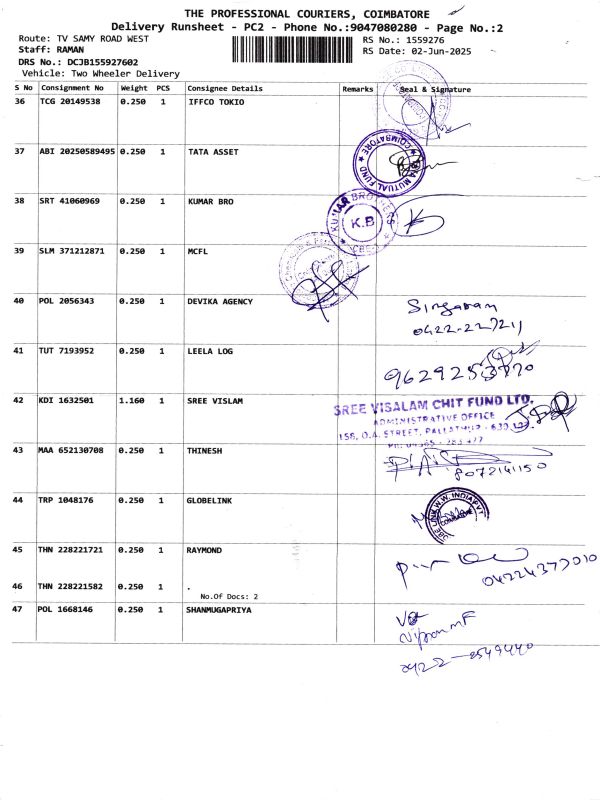 THE PROFESSIONAL COURIERS, COIMBATORE
Delivery Runsheet - PC2 - Phone No.:9047080280 - Page No.:2
Route: TV SAMY ROAD WEST
RS No.: 1559276
Staff: RAMAN
RS Date: 02-Jun-2025
DRS No.: DCJB155927602
Vehicle: Two Wheeler Delivery
S No Consignment No Weight PCS Consignee Details Remarks Seal & Signature
36 TCG 20149538 0.250 1 IFFCO TOKIO
37 ABI 20250589495 0.250 1 TATA ASSET
MUTUAL FUND ★ COIMBATORE ★
38 SRT 41060969 0.250 1 KUMAR BRO
KUMAR BROTHERS
K.B
39 SLM 371212871 0.250 1 MCFL
40 POL 2056343 0.250 1 DEVIKA AGENCY
0422-227211
41 TUT 7193952 0.250 1 LEELA LOG
9629253770
42 KDI 1632501 1.160 1 SREE VISLAM
SREE VISALAM CHIT FUND LTD.
ADMINISTRATIVE OFFICE
158, O.A. STREET, PALLATHUR - 630
43 MAA 652130708 0.250 1 THINESH
8072141150
44 TRP 1048176 0.250 1 GLOBELINK
LINK W.W. INDIA PVT
45 THN 228221721 0.250 1 RAYMOND
04224377010
46 THN 228221582 0.250 1 .
No.Of Docs: 2
47 POL 1668146 0.250 1 SHANMUGAPRIYA
0422-2549440